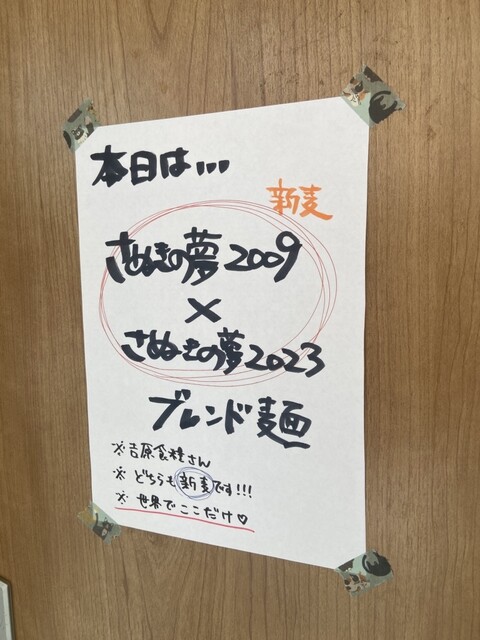 本日は...
新麦
さぬきの夢2009
×
さぬきの夢2023
ブレンド麺
※吉原食糧さん
※どちらも新麦です!!!
※世界でここだけ♡